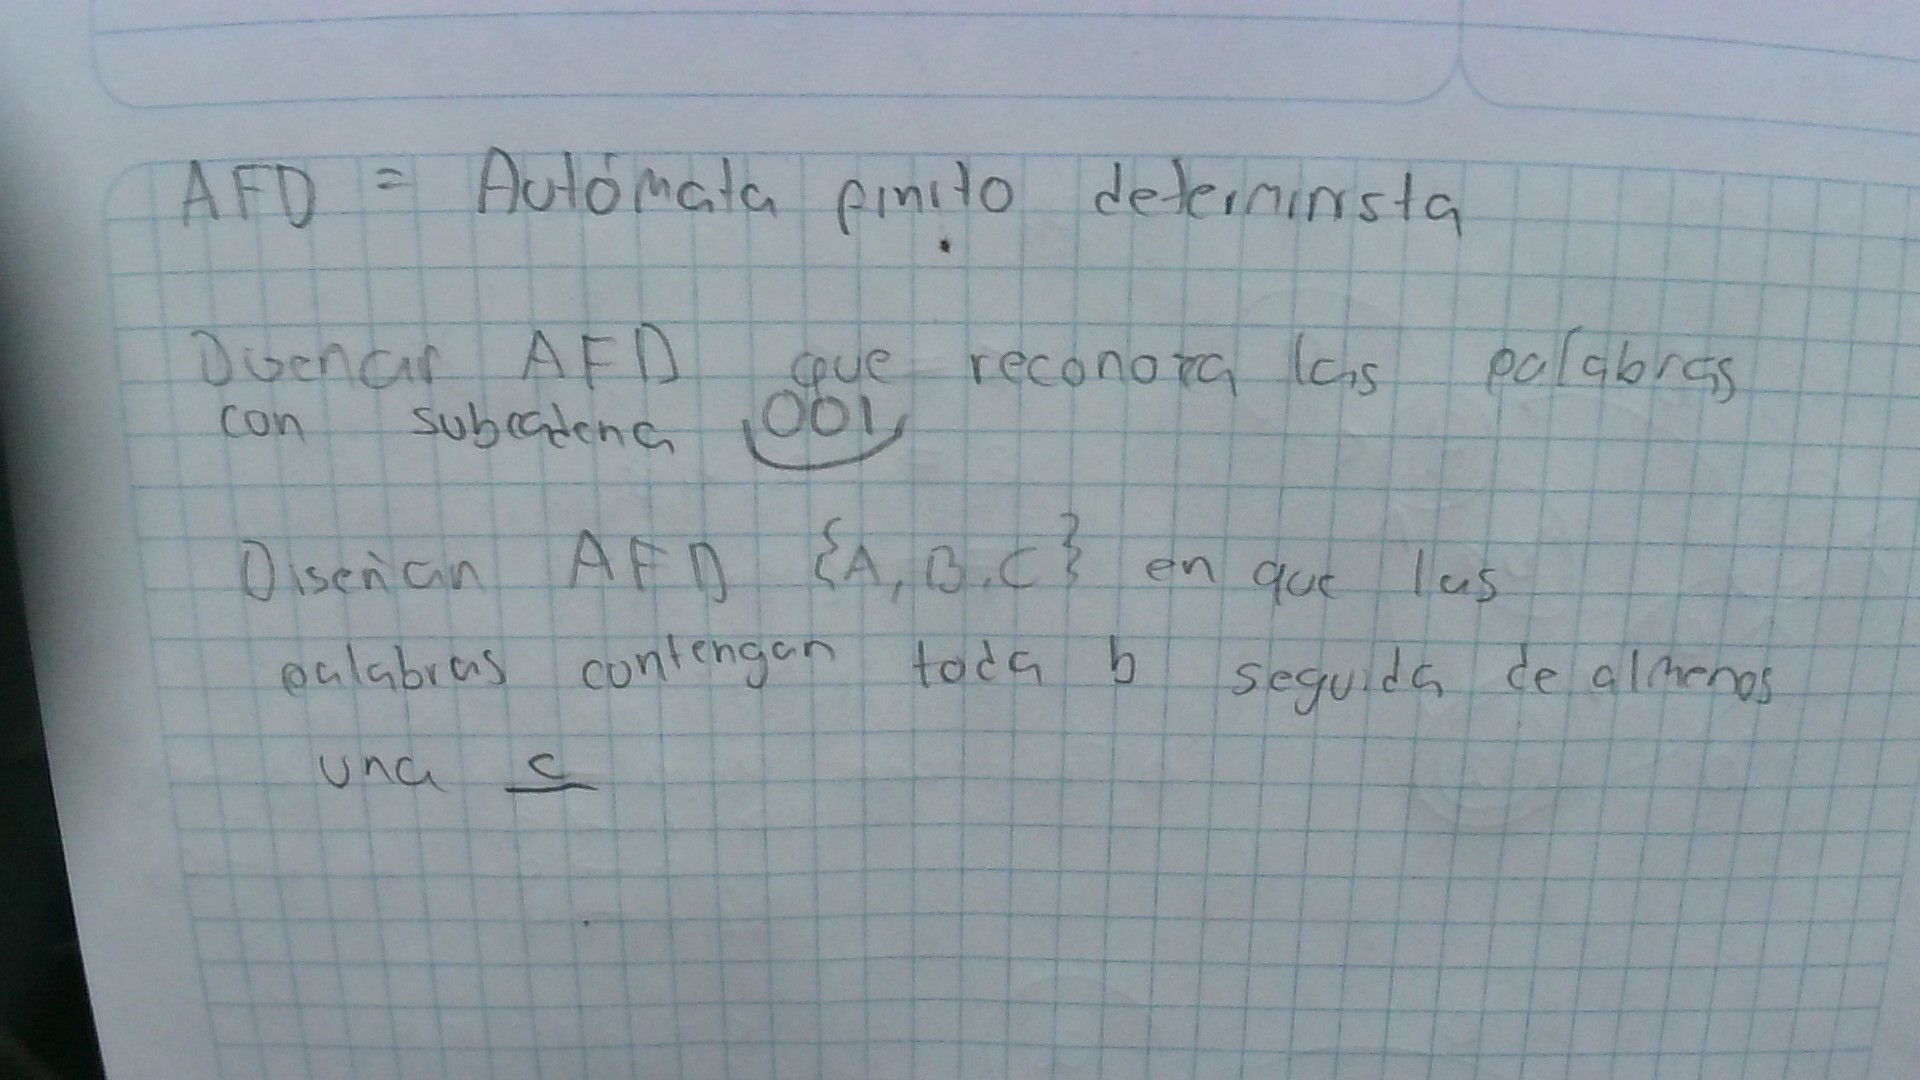 AFD = Autómata finito determinista
Disenar AFD que reconozca las palabras
con subcadena 001
Diseñan AFD {A, B, C} en que las
palabras contengan toda b seguida de almenos
una c